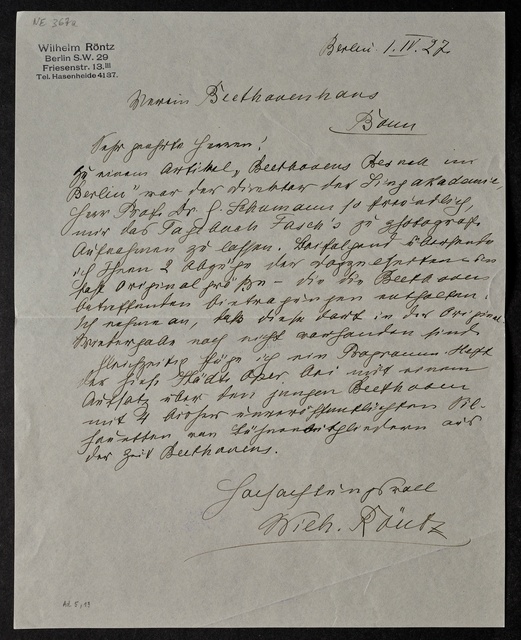 NE 367a
Wilhelm Röntz
Berlin S.W. 29
Friesenstr. 13.III
Tel. Hasenheide 4187.
Berlin 1.IV.27
Verein Beethovenhaus
Bonn
Sehr geehrte Herren!
Zu einem Artikel, „Beethovens Besuch in
Berlin" war der Direktor der Singakademie,
Herr Prof. Dr. G. Schumann so freundlich,
mir das Tagebuch Fasch's zu photogr.
Aufnahmen zu lassen. Beifolgend übersende
ich Ihnen 2 Abzüge der Doppelseiten in
fast Originalgröße – die die Beethoven
betreffenden Eintragungen enthalten.
Ich nehme an, daß diese dort in der Original-
Wiedergabe noch nicht vorhanden sind.
Gleichzeitig füge ich ein Programm-Heft
der hies. Städt. Oper bei mit einem
Aufsatz über den jungen Beethoven
mit 4 bisher unveröffentlichten Sil-
houetten von Bühnenmitgliedern aus
der Zeit Beethovens.
Hochachtungsvoll
Wilh. Röntz